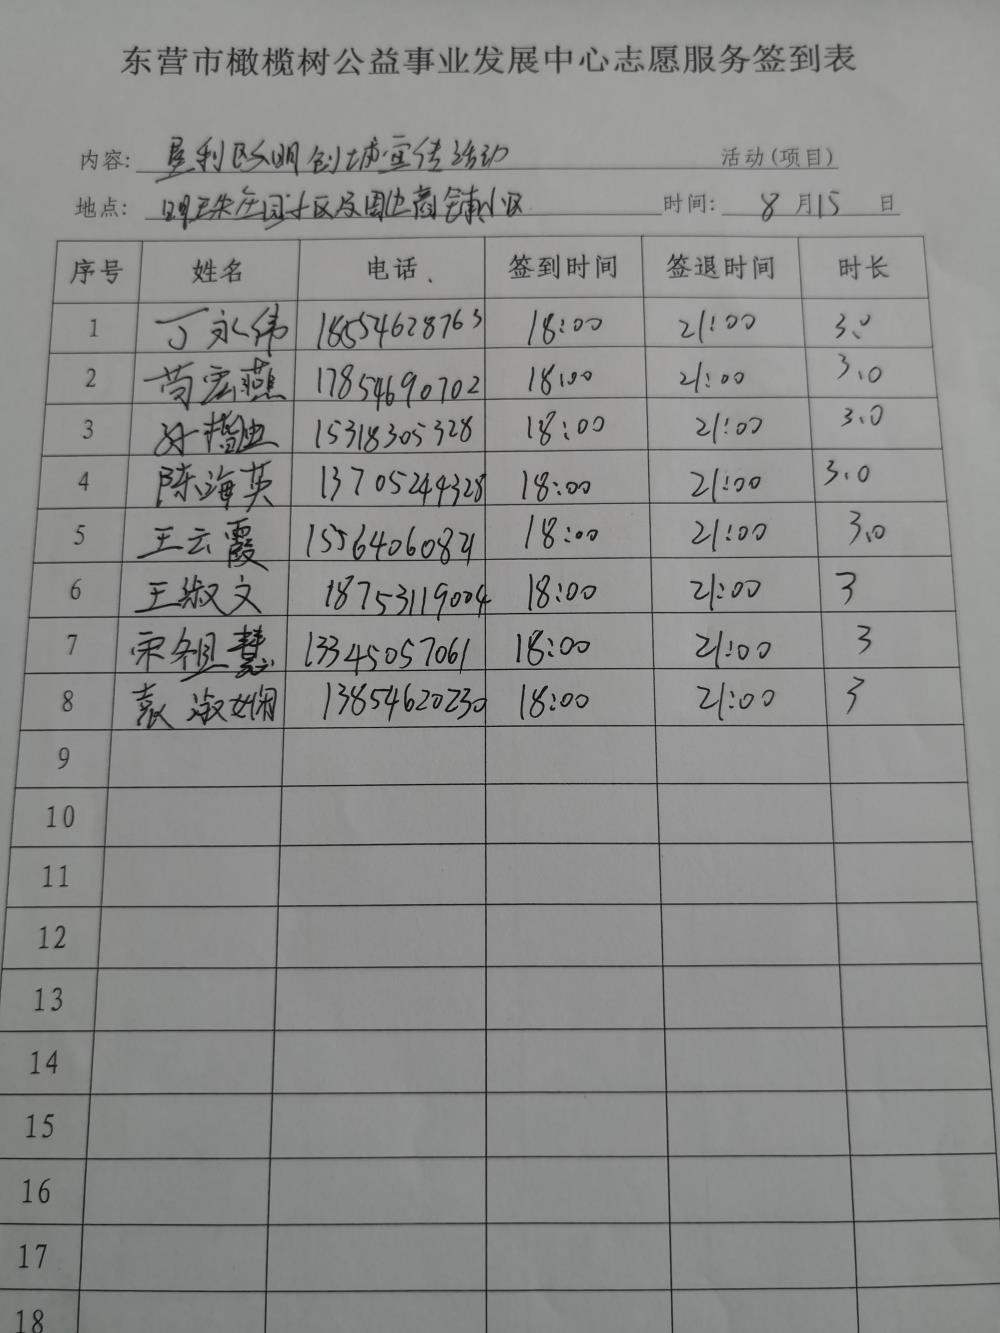 东营市橄榄树公益事业发展中心志愿服务签到表
内容: 垦利区文明创城宣传活动 活动(项目)
地点: 明珠庄园小区及周边商铺小区 时间: 8 月 15 日
序号 姓名 电话、 签到时间 签退时间 时长
1 丁永伟 18554628763 18:00 21:00 3.0
2 苟宏燕 17854690702 18:00 21:00 3.0
3 15318305328 18:00 21:00 3.0
4 陈海英 13705244328 18:00 21:00 3.0
5 王云霞 15564060821 18:00 21:00 3.0
6 王淑文 18753119004 18:00 21:00 3
7 13345057061 18:00 21:00 3
8 袁淑娴 13854620230 18:00 21:00 3
9
10
11
12
13
14
15
16
17
18